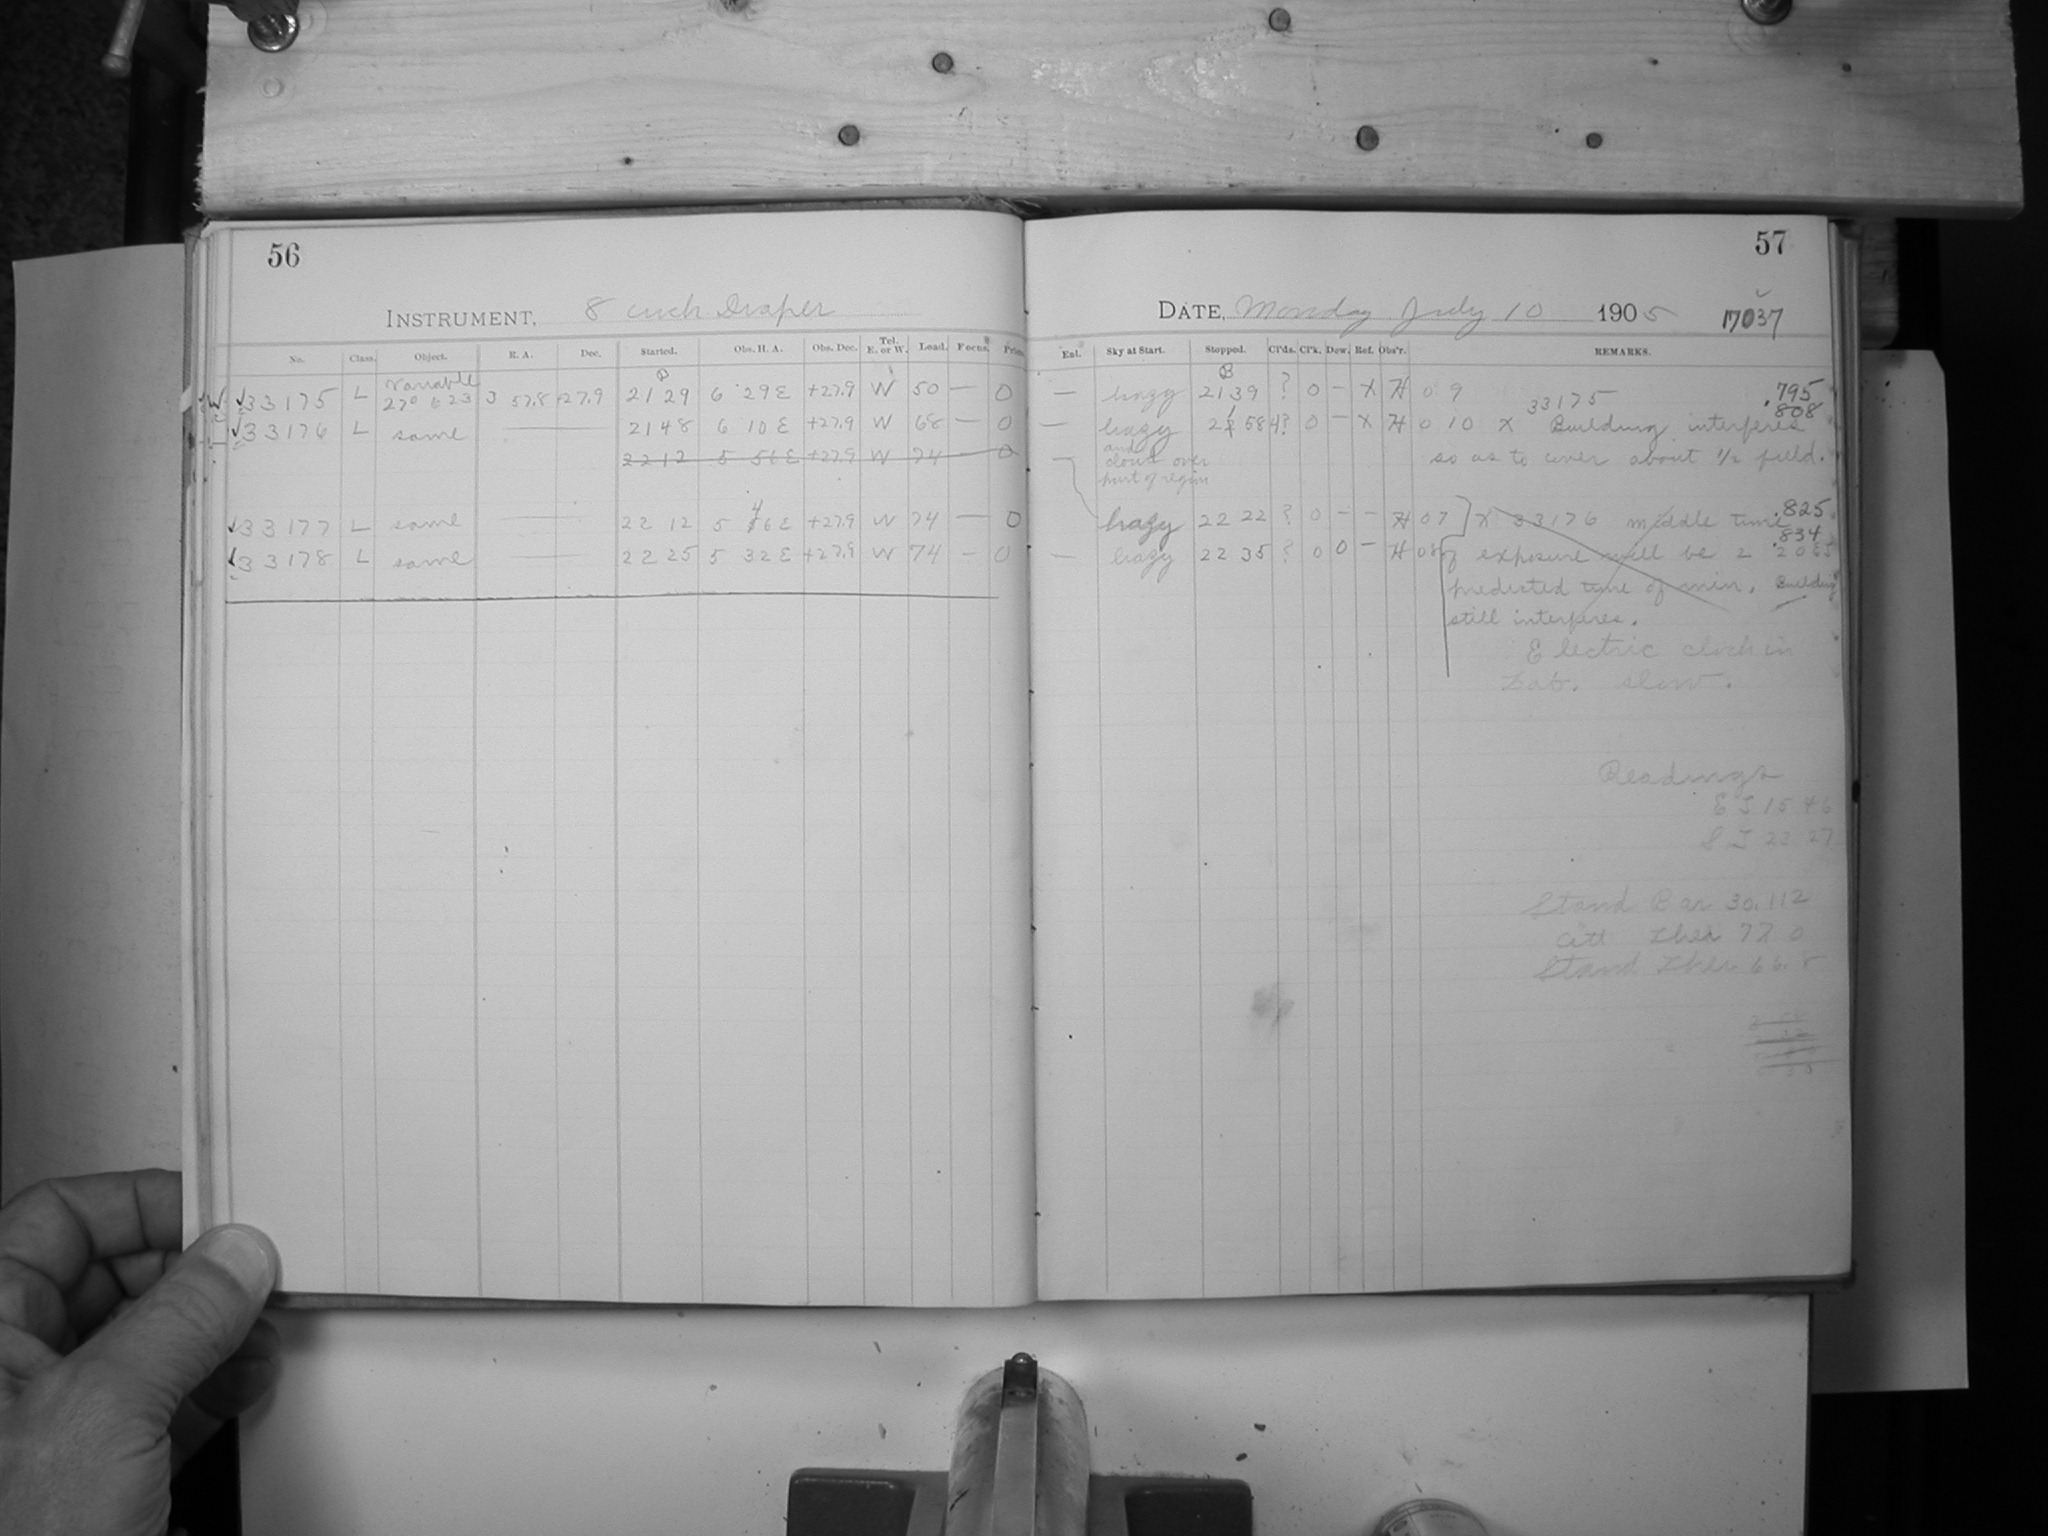 56
INSTRUMENT, 8 inch Draper
No. Class. Object. R. A. Dec. Started. Obs. H. A. Obs. Dec. Tel. E. or W. Load. Focus. Prism
33175 L Variable 27° 623 3 57.8 +27.9 2129 6 29E +27.9 W 50 — 0
33176 L same 2148 6 10E +27.9 W 68 — 0
2212 5 56E +27.9 W 74 — 0
33177 L same 22 12 5 46E +27.9 W 74 — 0
33178 L same 22 25 5 32E +27.9 W 74 — 0
57
DATE, Monday July 10 1905 17037
Ent. Sky at Start. Stopped. Cl'ds. Cl'k. Dew. Ref. Obs'r. REMARKS.
— hazy 2139 ? 0 — X H 0 9 33175 .795
— hazy 21 58 4? 0 — X H 0 10 X Building interferes .808
and cloud over part of region so as to cover about 1/2 field.
hazy 22 22 ? 0 - - H 07 X 33176 middle time .825
— hazy 22 35 ? 0 0 — H 08 of exposure will be 2 2085 .834
predicted time of min. Building
still interferes.
Electric clock in
Lab. slow.
Readings
E T 15 46
S T 23 27
Stand Bar 30.112
Att Ther 77.0
Stand Ther 66.8